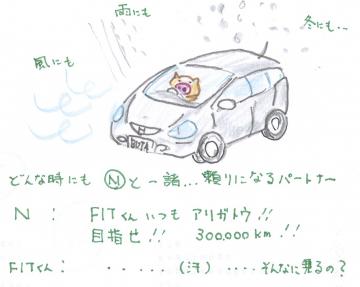 雨にも
冬にも・・
風にも
BUTA
どんな時にも Ⓝと一諸...頼りになるパートナー
N : FITくん いつも アリガトウ!!
目指せ!! 300,000km!!
FITくん: ・・・・・(汗)・・・・そんなに乗るの?